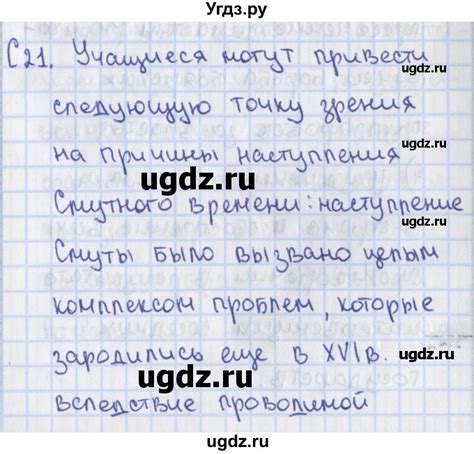 Угдз.ру
С21. Учащиеся могут привести
©ugdz.ru
следующую точку зрения
на причины наступления
ugdz.ru
Смутного времени: наступление
Смуты было вызвано целым
комплексом проблем, которые
зародились еще в XVI в.
ugdz.ru
вследствие проводимой
ugdz.ru